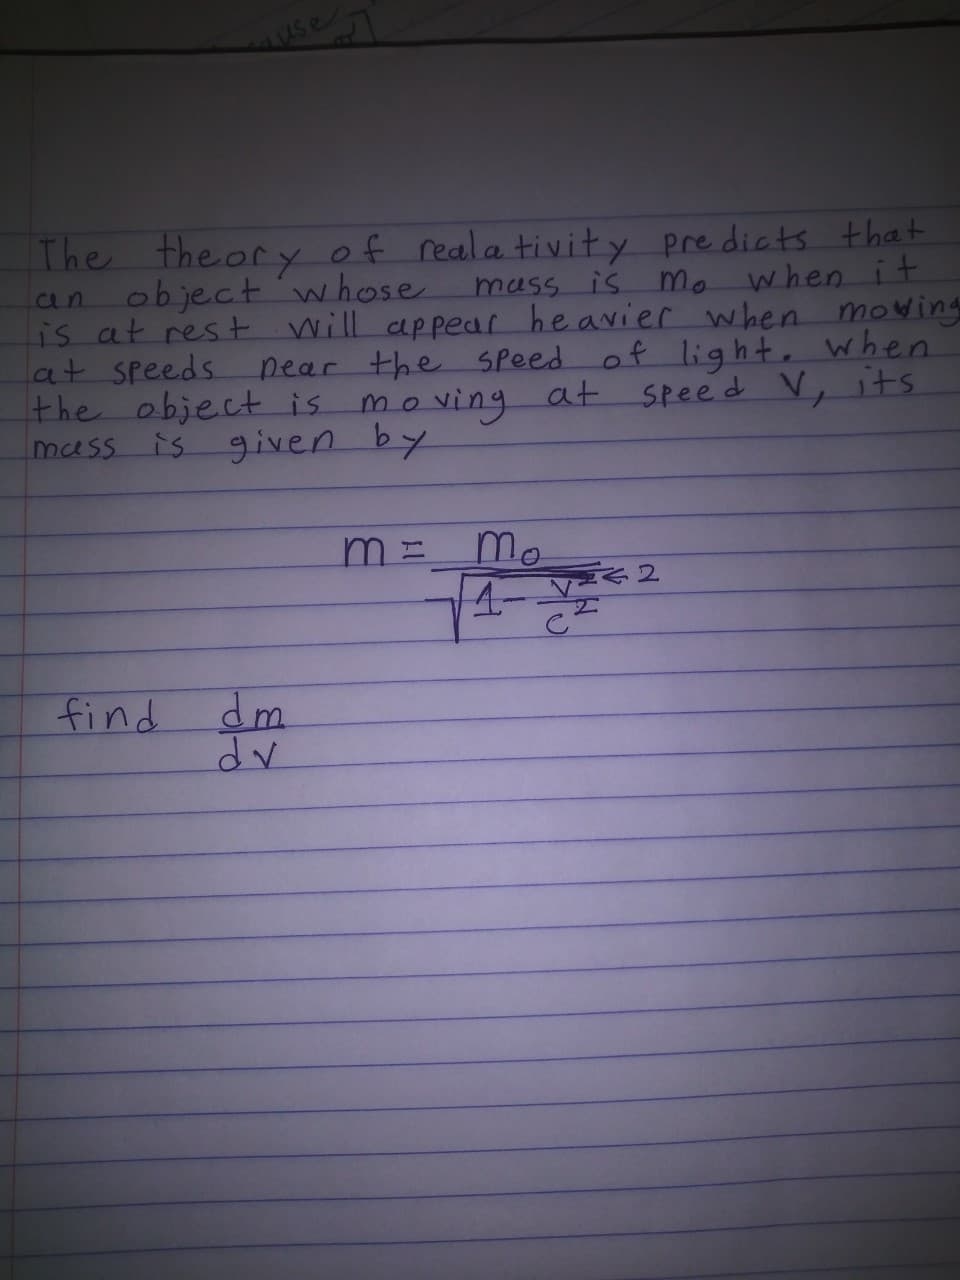 The theory of realativity predicts that
an object whose mass is m₀ when it
is at rest will appear heavier when moving
at speeds near the speed of light. when
the object is moving at speed v, its
mass is given by
m = m₀
√1 - v² ← 2
c²
find dm
dv